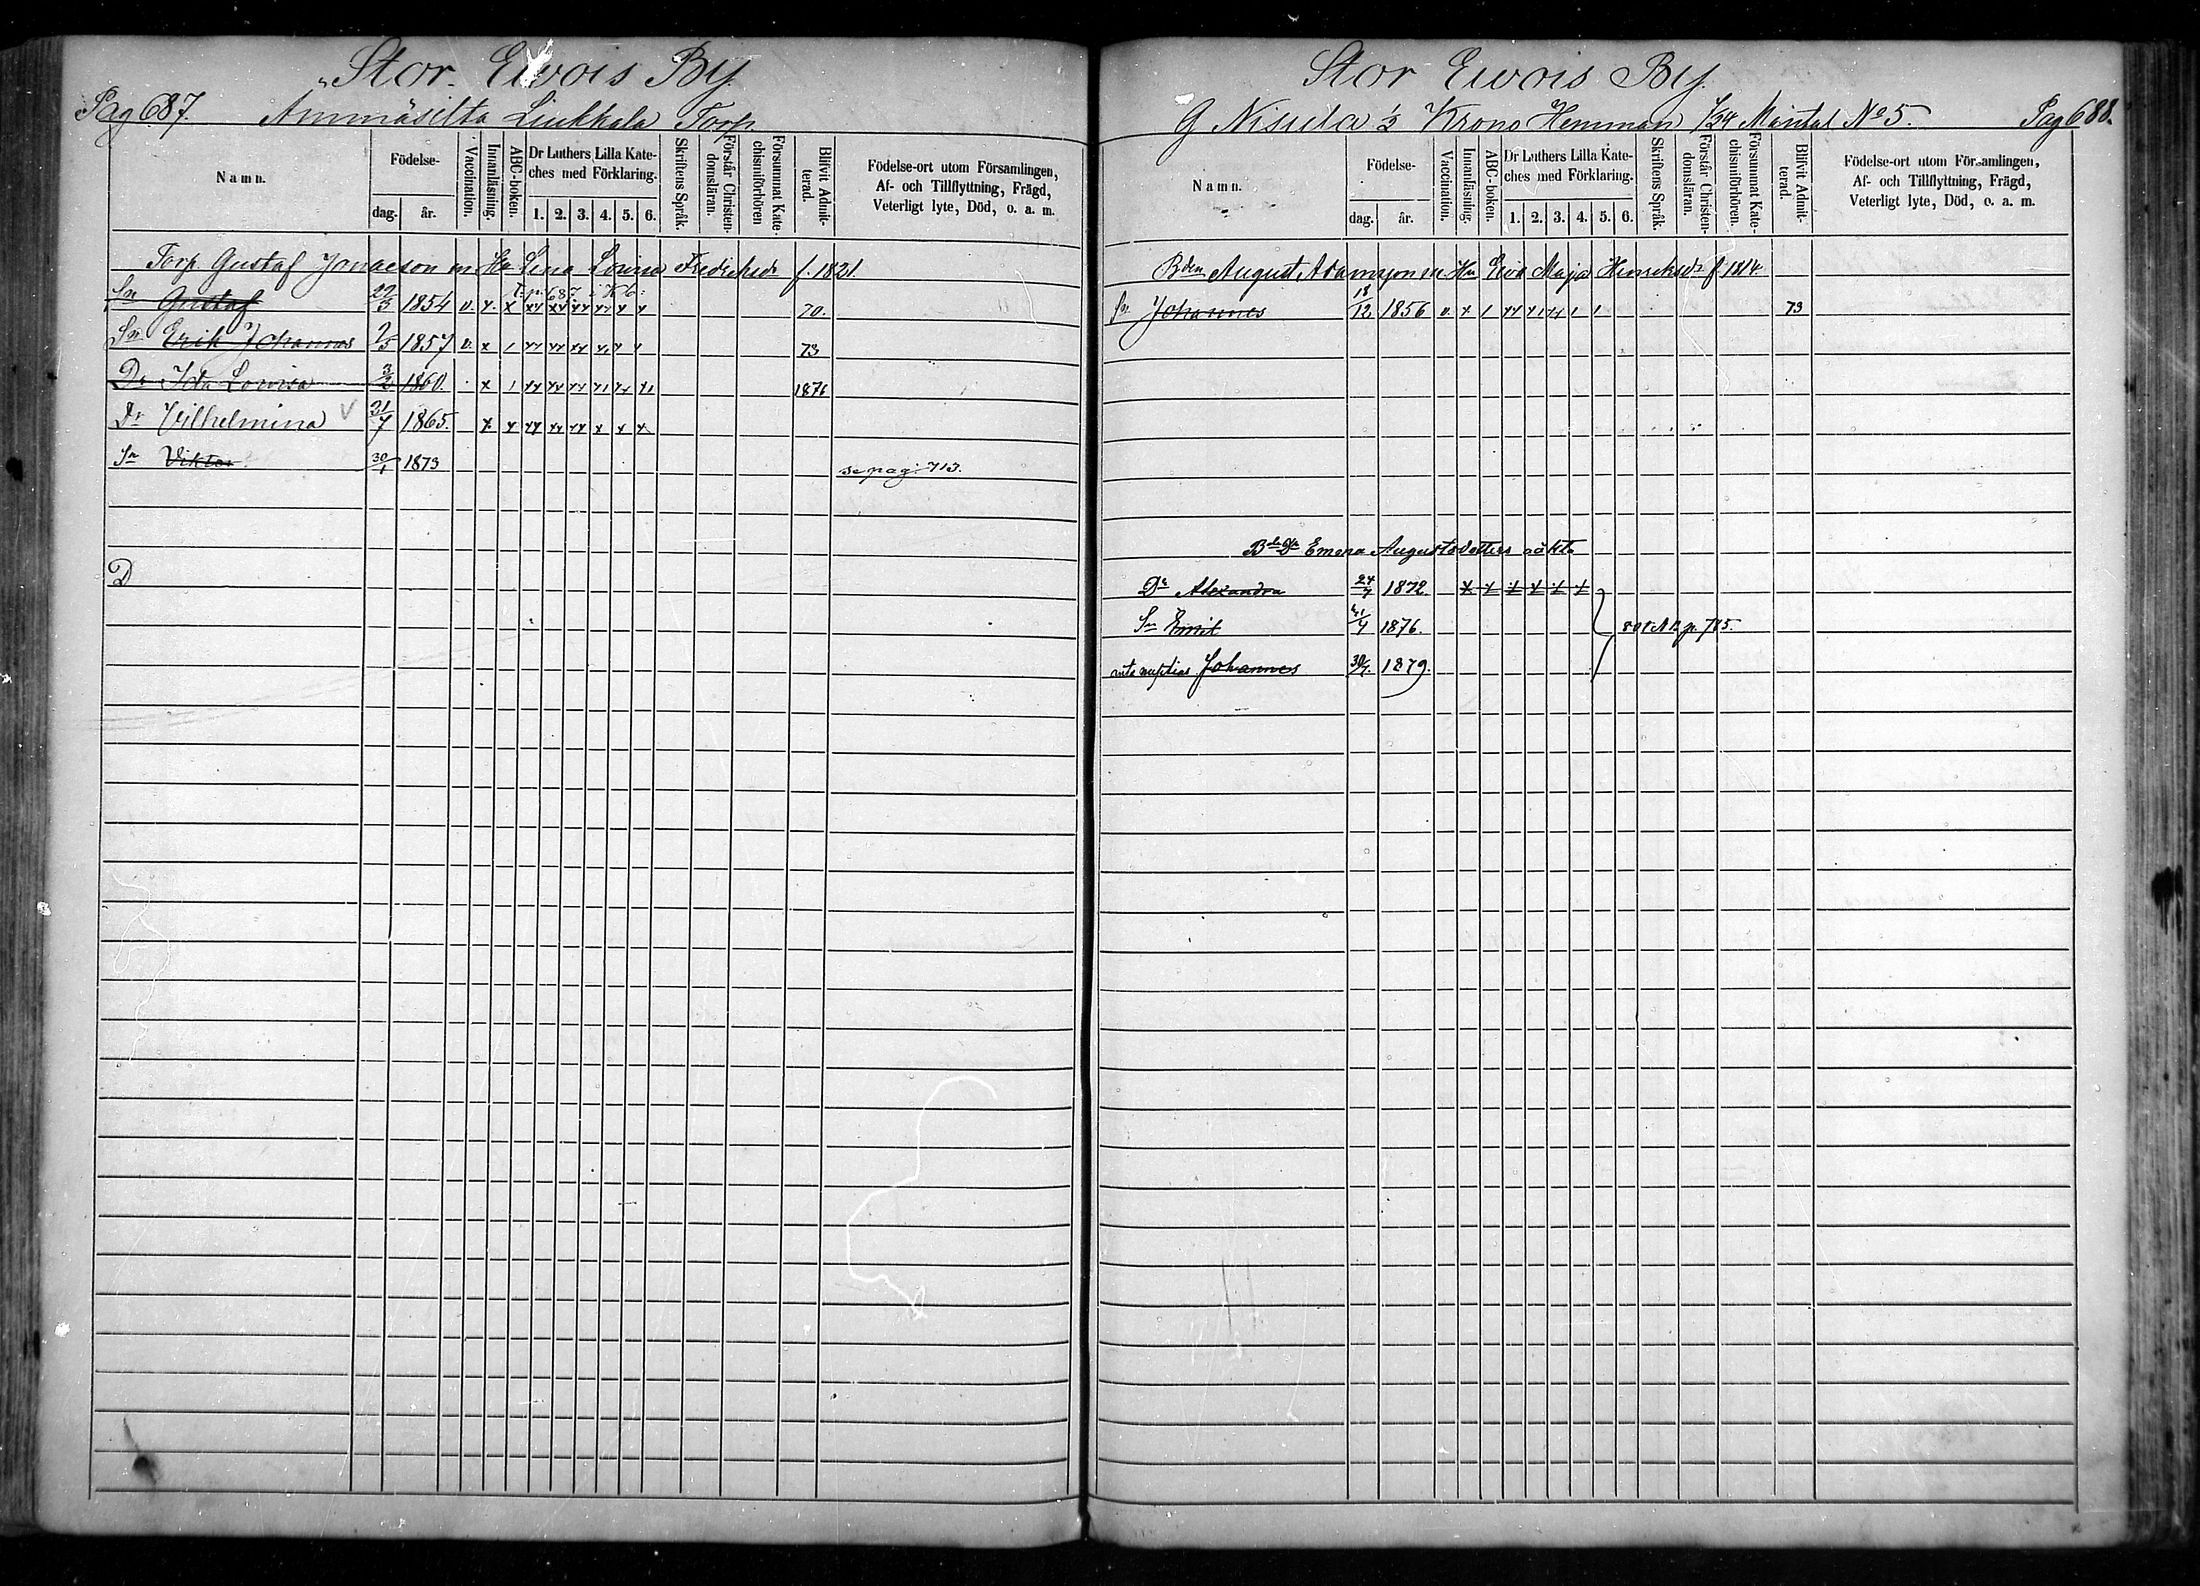 Stor Ewois By.
Pag 687. Ammäsilta Liukkala Torp
Namn. Födelse- dag. år. Vaccination. Innanläsning. ABC-boken. Dr Luthers Lilla Kateches med Förklaring. 1. 2. 3. 4. 5. 6. Skriftens Språk. Förstår Christendomsläran. Försummat Katechismiförhören Blifvit Admitterad. Födelse-ort utom Församlingen, Af- och Tillflyttning, Frägd, Veterligt lyte, Död, o. a. m.
Torp Gustaf Jonaeson m. Hu Lena Lovisa Fredriksdr f. 1821
T. p. 687 i K b:
Sn Gustaf 22/5 1854 v. x. x xx xx xx xx x x 70.
Sn Erik Johannes 2/5 1857 v. x 1 xx xx xx x x x 73
Dr Ida Lovisa 3/2 1860. x 1 xx xx xx x1 xx x1 1876
Dr Vilhelmina V 21/7 1865. x x xx xx xx x x x
Sn Viktor 30/1 1873 se pag: 713.
D
Stor Ewois By.
G Nisula ½ Krono Hemman 1/24 Mantal No 5. Pag 688.
Namn. Födelse- dag. år. Vaccination. Innanläsning. ABC-boken. Dr Luthers Lilla Kateches med Förklaring. 1. 2. 3. 4. 5. 6. Skriftens Språk. Förstår Christendomsläran. Försummat Katechismiförhören. Blifvit Admitterad. Födelse-ort utom Församlingen, Af- och Tillflyttning, Frägd, Veterligt lyte, Död, o. a. m.
Bden August Adamsson m. Hu Eva Maja Henriksdr f. 1814
Sn Johannes 18/12 1856 v. x 1 xx x1 x1 1 1 73
Bde Dr Emma Augustsdotters oäkta
Dr Alexandra 24/7 1872 x x x x x x
Sn Emil 1876. p. 715.
ante nuptias Johannes 30/7. 1879.